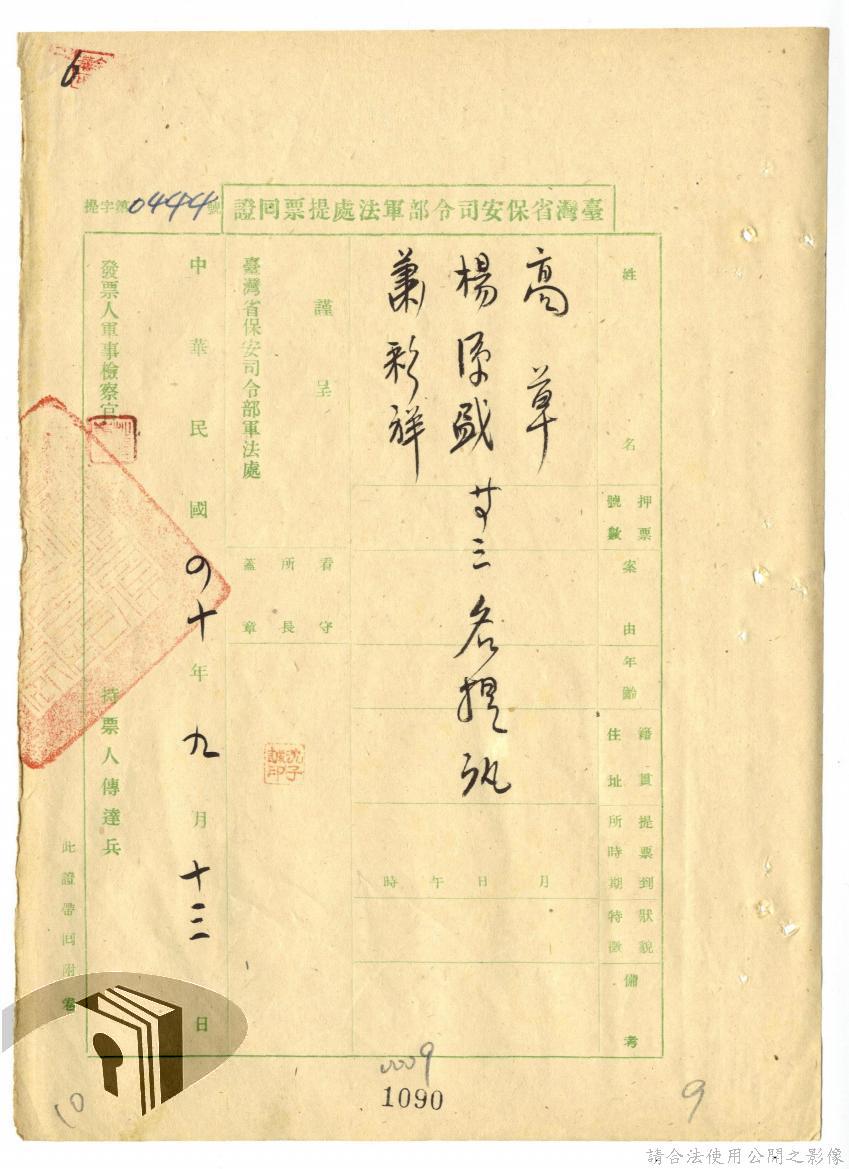 臺灣省保安司令部軍法處提票回證
提字第0444號
姓名
押票號數
案由
年齡
籍貫住址
提票到所時期
狀貌特徵
備考
高草
楊深盛 等三名提訊
蕭彩祥
月日午時
謹呈
臺灣省保安司令部軍法處
看守所長蓋章
沈子誠印
中華民國四十年九月十三日
發票人軍事檢察官
持票人傳達兵
此證帶回附卷
6
0009
1090
9
10
請合法使用公開之影像